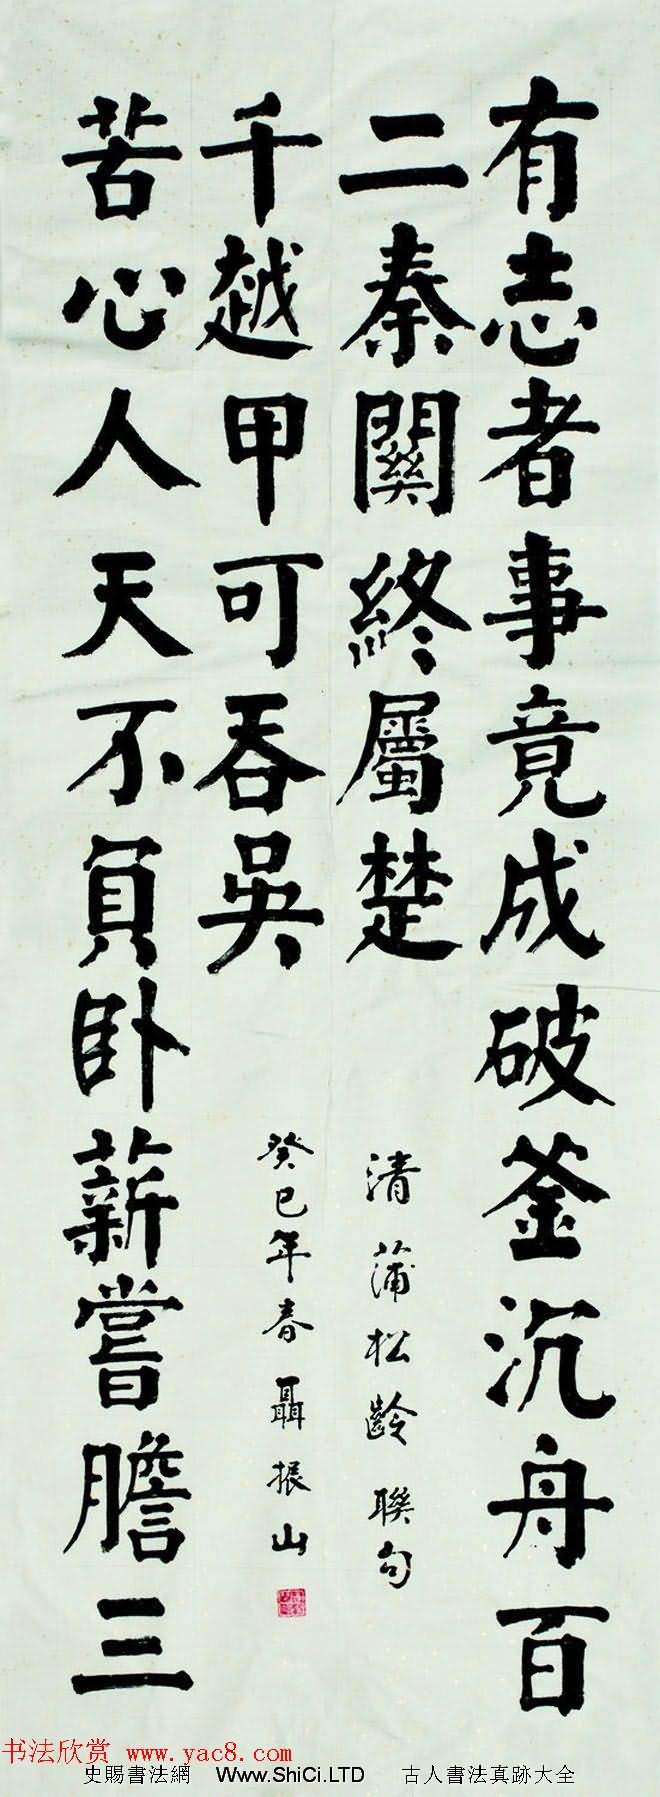 有志者事竟成破釜沉舟百
二秦關終屬楚
清蒲松齡聯句
苦心人天不負卧薪嘗膽三
千越甲可吞吳
癸巳年春聶振山
书法欣赏 www.yac8.com
史賜書法網 Www.ShiCi.LTD 古人書法真跡大全